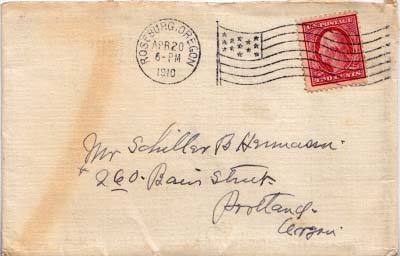 ROSEBURG, OREGON
APR 20
6-PM
1910
U.S. POSTAGE
TWO CENTS
Mr Schiller B Hermann.
260. Bair Street.
Portland.
Oregon.